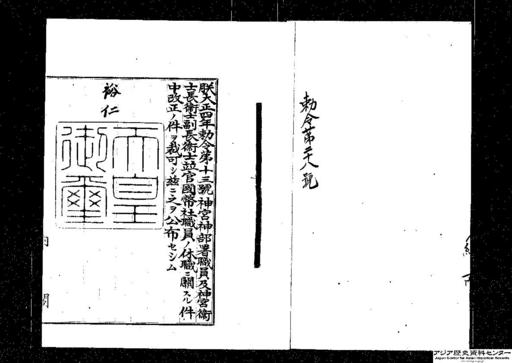 勅令第二十八號
朕大正四年勅令第十三號神宮神部署職員及神宮衛
士長衛士副長衛士竝官國幣社職員ノ休職ニ關スル件
中改正ノ件ヲ裁可シ玆ニ之ヲ公布セシム
裕仁
天皇
御璽
内閣
アジア歴史資料センター
Japan Center for Asian Historical Records